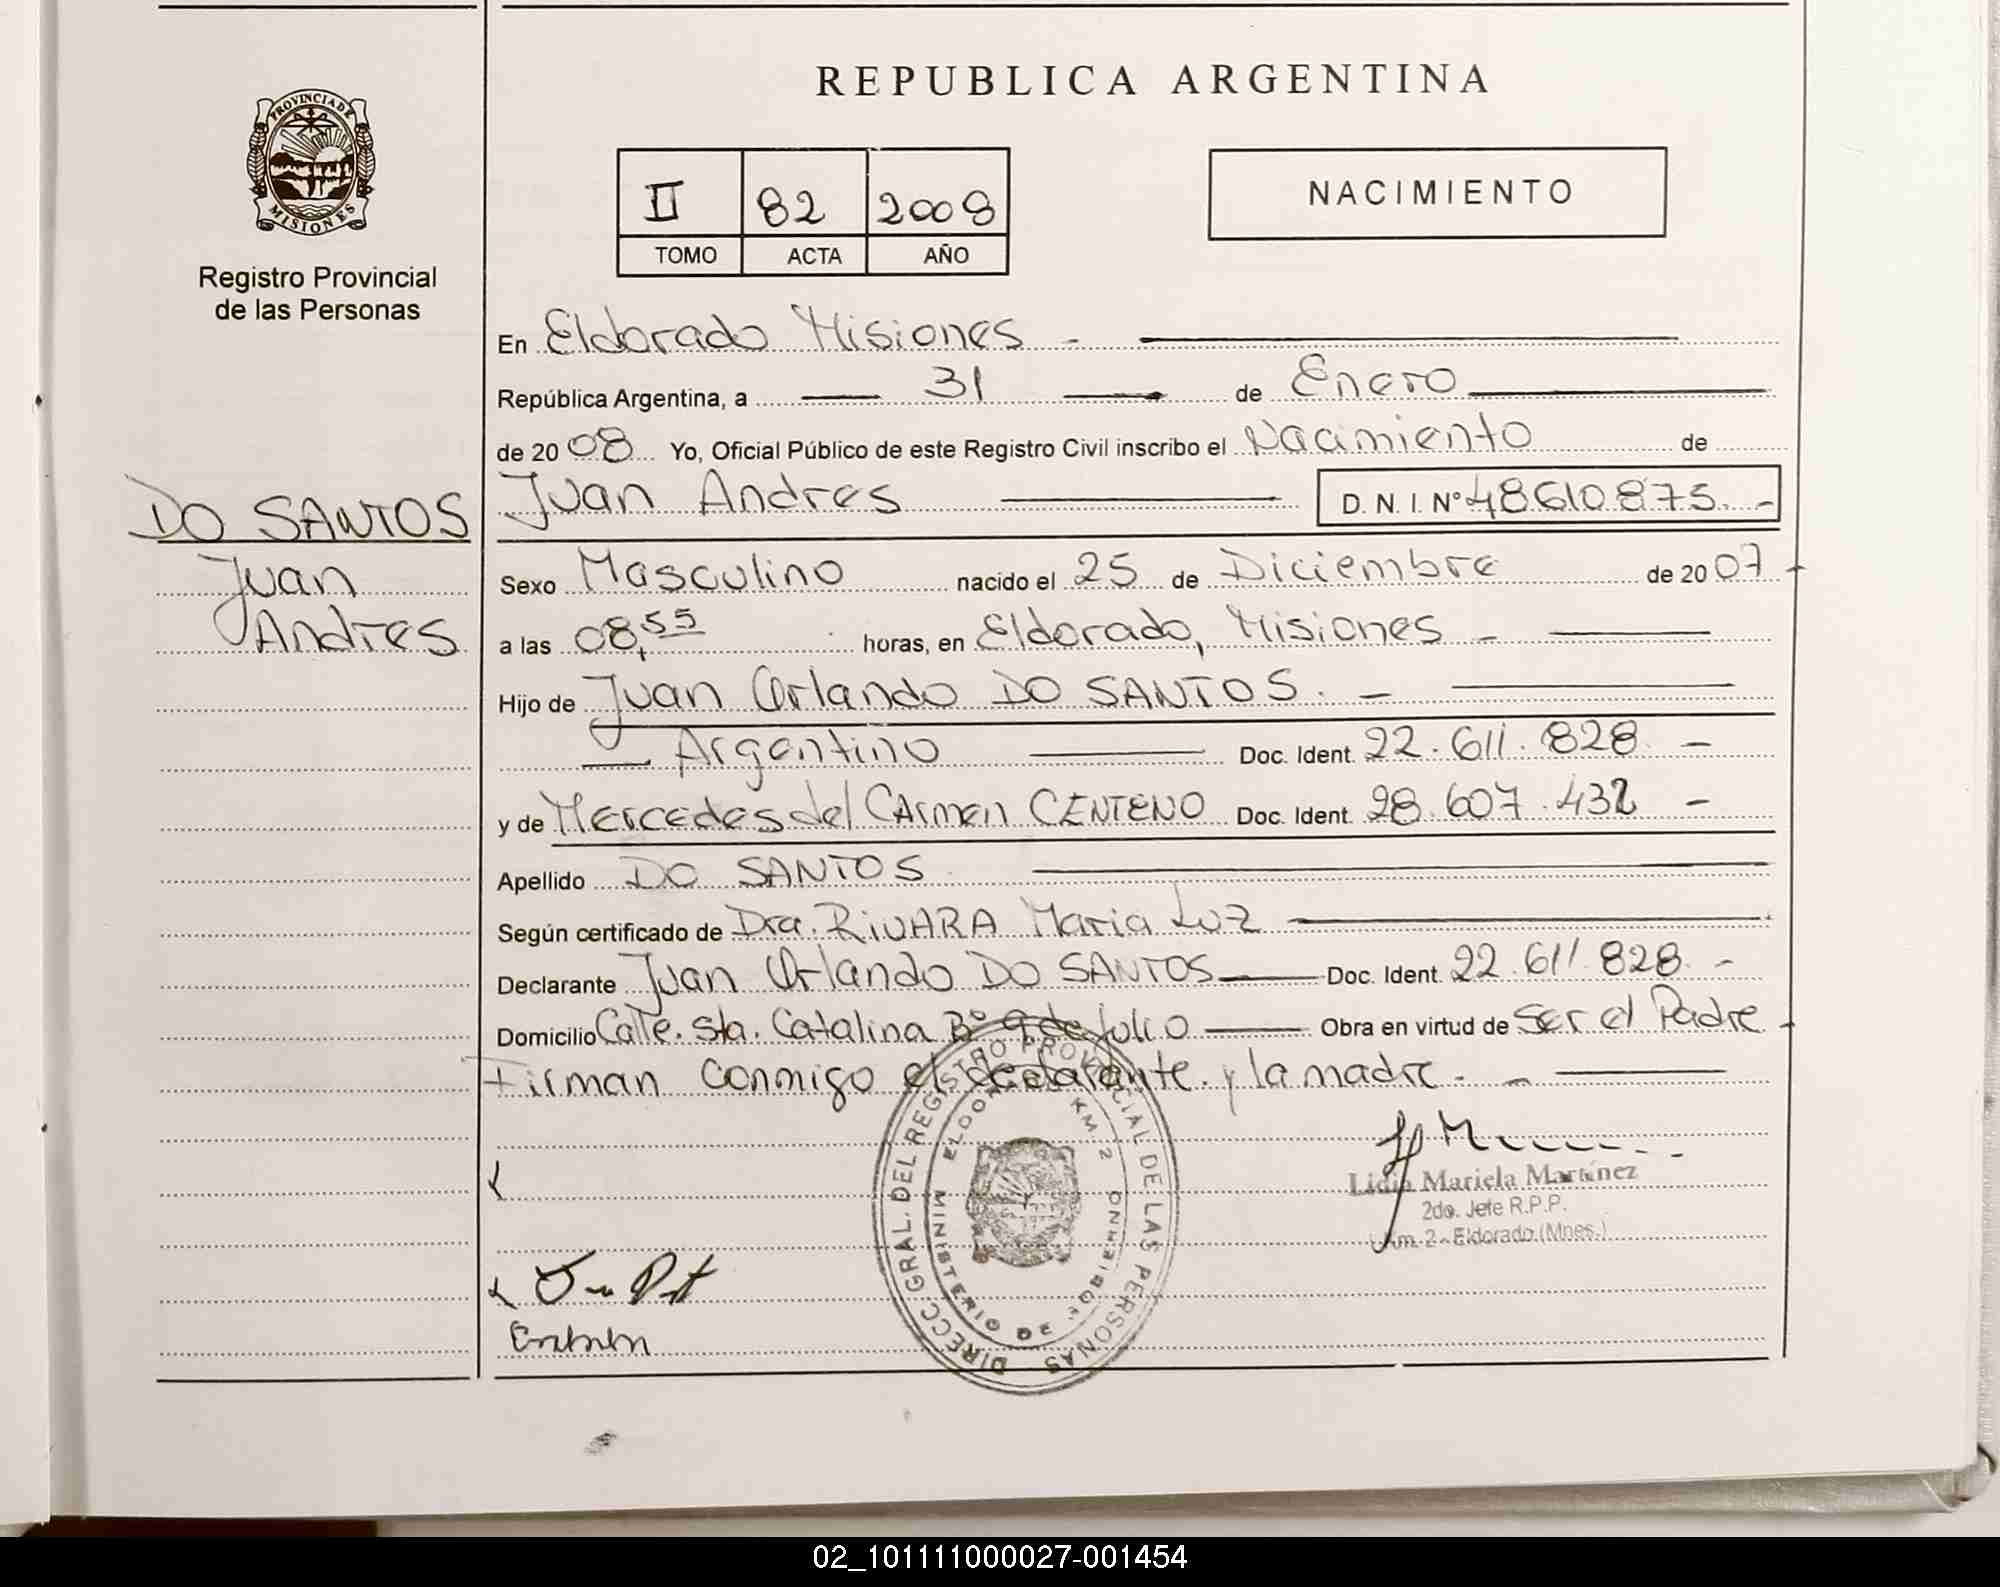 REPUBLICA ARGENTINA
PROVINCIA DE MISIONES
Registro Provincial
de las Personas
II 82 2008
TOMO ACTA AÑO
NACIMIENTO
En Eldorado Misiones -
República Argentina, a 31 de Enero
de 2008 Yo, Oficial Público de este Registro Civil inscribo el Nacimiento de
DO SANTOS
Juan
Andres
Juan Andres D. N. I. N° 48610.875. -
Sexo Masculino nacido el 25 de Diciembre de 2007
a las 08,55 horas, en Eldorado, Misiones -
Hijo de Juan Orlando DO SANTOS. -
Argentino Doc. Ident. 22.611.828 -
y de Mercedes del CArmen CENTENO Doc. Ident. 28.607.432 -
Apellido DO SANTOS
Según certificado de Dra. RIVARA Maria Luz
Declarante Juan Orlando DO SANTOS Doc. Ident. 22.611.828. -
Domicilio Calle. Sta. Catalina B° 9 de Julio Obra en virtud de Ser el Padre
Firman conmigo el declarante. y la madre. -
DIRECC. GRAL. DEL REGISTRO PROVINCIAL DE LAS PERSONAS
MINISTERIO DE GOBIERNO
KM 2
Lidia Mariela Martinez
2do. Jefe R.P.P.
Km. 2 - Eldorado (Mnes.)
02_101111000027-001454